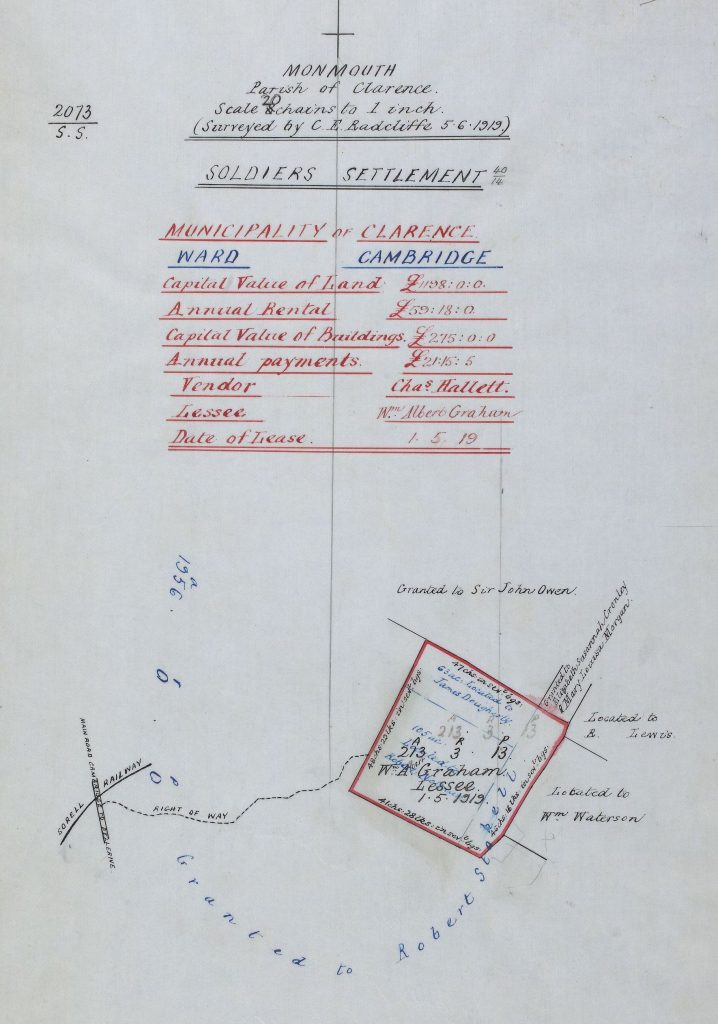 MONMOUTH
Parish of Clarence.
Scale 20 chains to 1 inch.
(Surveyed by C. E. Radcliffe 5·6·1919.)
2073
S. S.
SOLDIERS SETTLEMENT 40/14
MUNICIPALITY OF CLARENCE
WARD CAMBRIDGE
Capital Value of Land £1198:0:0.
Annual Rental £59:18:0.
Capital Value of Buildings. £275:0:0
Annual payments. £21:15:5
Vendor Chas Hallett.
Lessee Wm. Albert Graham
Date of Lease. 1. 5. 19
1956a.
0
0
Granted to Sir John Owen.
Granted to
Elizabeth Susannah
& Mary Louisa Morgan.
Located to
R. Lewis.
Located to
Wm Waterson
47chs in sevl bgs.
63 ac. Located to
James Dougherty
A R P
213 3 13
105ac.
A R P
213 3 13
Wm A. Graham
Lessee.
1·5·1919.
41chs·28lks·in sevl bgs.
SORELL RAILWAY
MAIN ROAD CAMBRIDGE TO
RIGHT OF WAY
Granted to Robert